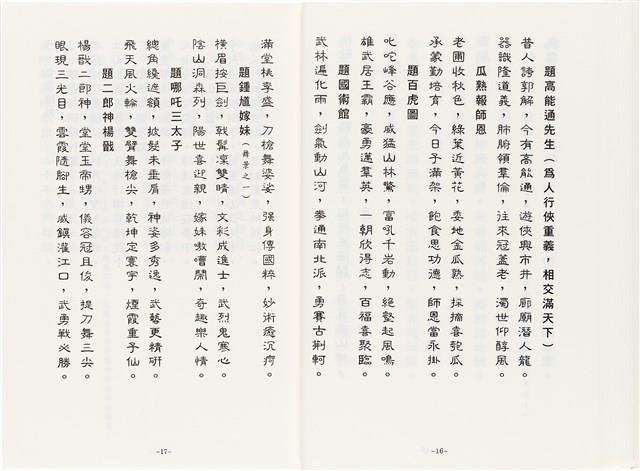 題高能通先生(為人行俠重義,相交滿天下)
昔人誇郭解,今有高能通,遊俠興市井,廊廟潛人龍。
器識隆道義,肺腑領羣倫,往來冠蓋老,濁世仰醇風。
瓜熟報師恩
老圃收秋色,綠葉近黃花,委地金瓜熟,採摘喜匏瓜。
承蒙勤培育,今日子滿架,飽食思功德,師恩當永掛。
題百虎圖
叱咤峰谷應,威猛山林驚,富吼千岩動,絕壑起風鳴。
雄武居王霸,豪勇邁羣英,一朝欣得志,百福喜聚臨。
題國術館
武林遍化雨,劍氣動山河,拳通南北派,勇賽古荆軻。
-16-
滿堂桃李盛,刀槍舞婆娑,强身傳國粹,妙術癒沉疴。
題鍾馗嫁妹(舞景之一)
橫眉按巨劍,戟髯凜雙睛,文彩成進士,武烈鬼寒心。
陰山洞森列,陽世喜迎親,嫁妹嗷嘈鬧,奇趣樂人情。
題哪吒三太子
總角繞遮額,披髮未垂肩,神姿多秀逸,武藝更精研。
飛天風火輪,雙臂舞槍尖,乾坤定寰宇,煙霞重子仙。
題二郎神楊戩
楊戩二郎神,堂堂玉帝甥,儀容冠且俊,提刀舞三尖。
眼現三光目,雲霞隨腳生,威鎮灌江口,武勇戰必勝。
-17-